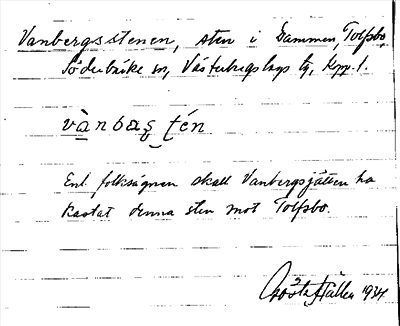 Vanbergsstenen, sten i Dammen, Tolfsbo,
Söderbärke sn, Västerbergslags tg, Kpp. l.
vànbas̱ tén
Enl. folksägnen skall Vanbergsjätten ha
kastat denna sten mot Tolfsbo.
Gösta Hallen 1934